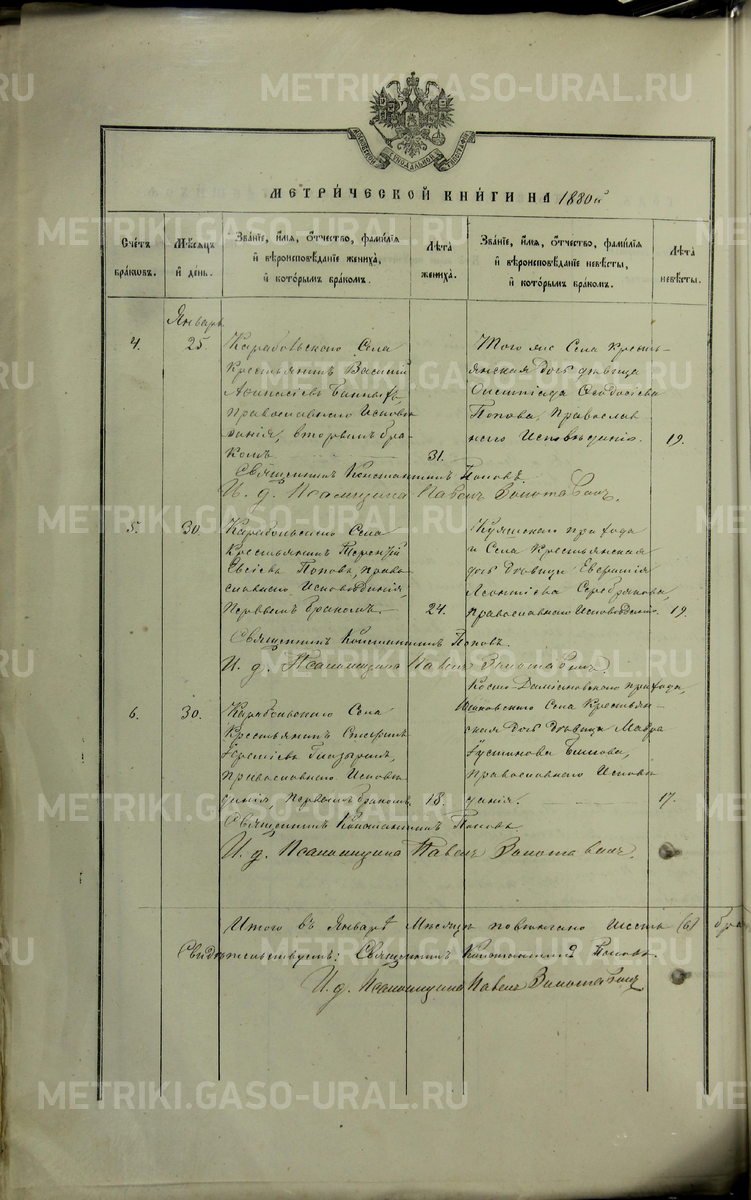 МЕТРИ́ЧЕСКОЙ КНИ́ГИ НА 1880й
Сче́тъ бра́ковъ.
Мѣ́сяцъ и҆ де́нь.
Зва́нїе, и҆́мя, ѻ҆́тчество, фами́лїя и҆ вѣроисповѣ́данїе жениха̀, и҆ кото́рымъ бра́комъ.
Лѣ́та жениха̀.
Зва́нїе, и҆́мя, ѻ҆́тчество, фами́лїя и҆ вѣроисповѣ́данїе невѣ́сты, и҆ кото́рымъ бра́комъ.
Лѣ́та невѣ́сты.
Январь
4.
25.
Карабольскаго Села
Крестьянинъ Василій
Афанасіевъ
Православнаго Исповѣ
данія, вторымъ бра-
комъ.
31.
Того же Села кресть-
янская дочь дѣвица
Олимпіада Ѳеодосіева
Попова, Православ
наго Исповѣданія.
19.
Священникъ Константинъ Поповъ.
И. д. Псаломщика Павелъ
5.
30.
Карабольскаго Села
Крестьянинъ Терентій
Евсіевъ Поповъ, Право-
славнаго Исповѣданія,
Первымъ бракомъ.
24.
прихода
и Села Крестьянская
дочь Дѣвица
Леонтіева Серебрякова,
Православнаго Исповѣданія.
19.
Священникъ Константинъ Поповъ.
И. д. Псаломщика Павелъ
6.
30.
Карабольскаго Села
Крестьянинъ
Православнаго Исповѣ
данія, первымъ бракомъ.
18.
Косьмо-Даміановскаго прихода,
Села Крестьян-
ская Дочь Дѣвица Мавра
Устинова
Православнаго Исповѣ
данія.
17.
Священникъ Константинъ Поповъ
И. д. Псаломщика Павелъ
Итого въ Январѣ Мѣсяцѣ повѣнчано Шесть (6) бра
Свидѣтельствуемъ: Священникъ Константинъ Поповъ.
И. д. Псаломщика Павелъ
METRIKI.GASO-URAL.RU